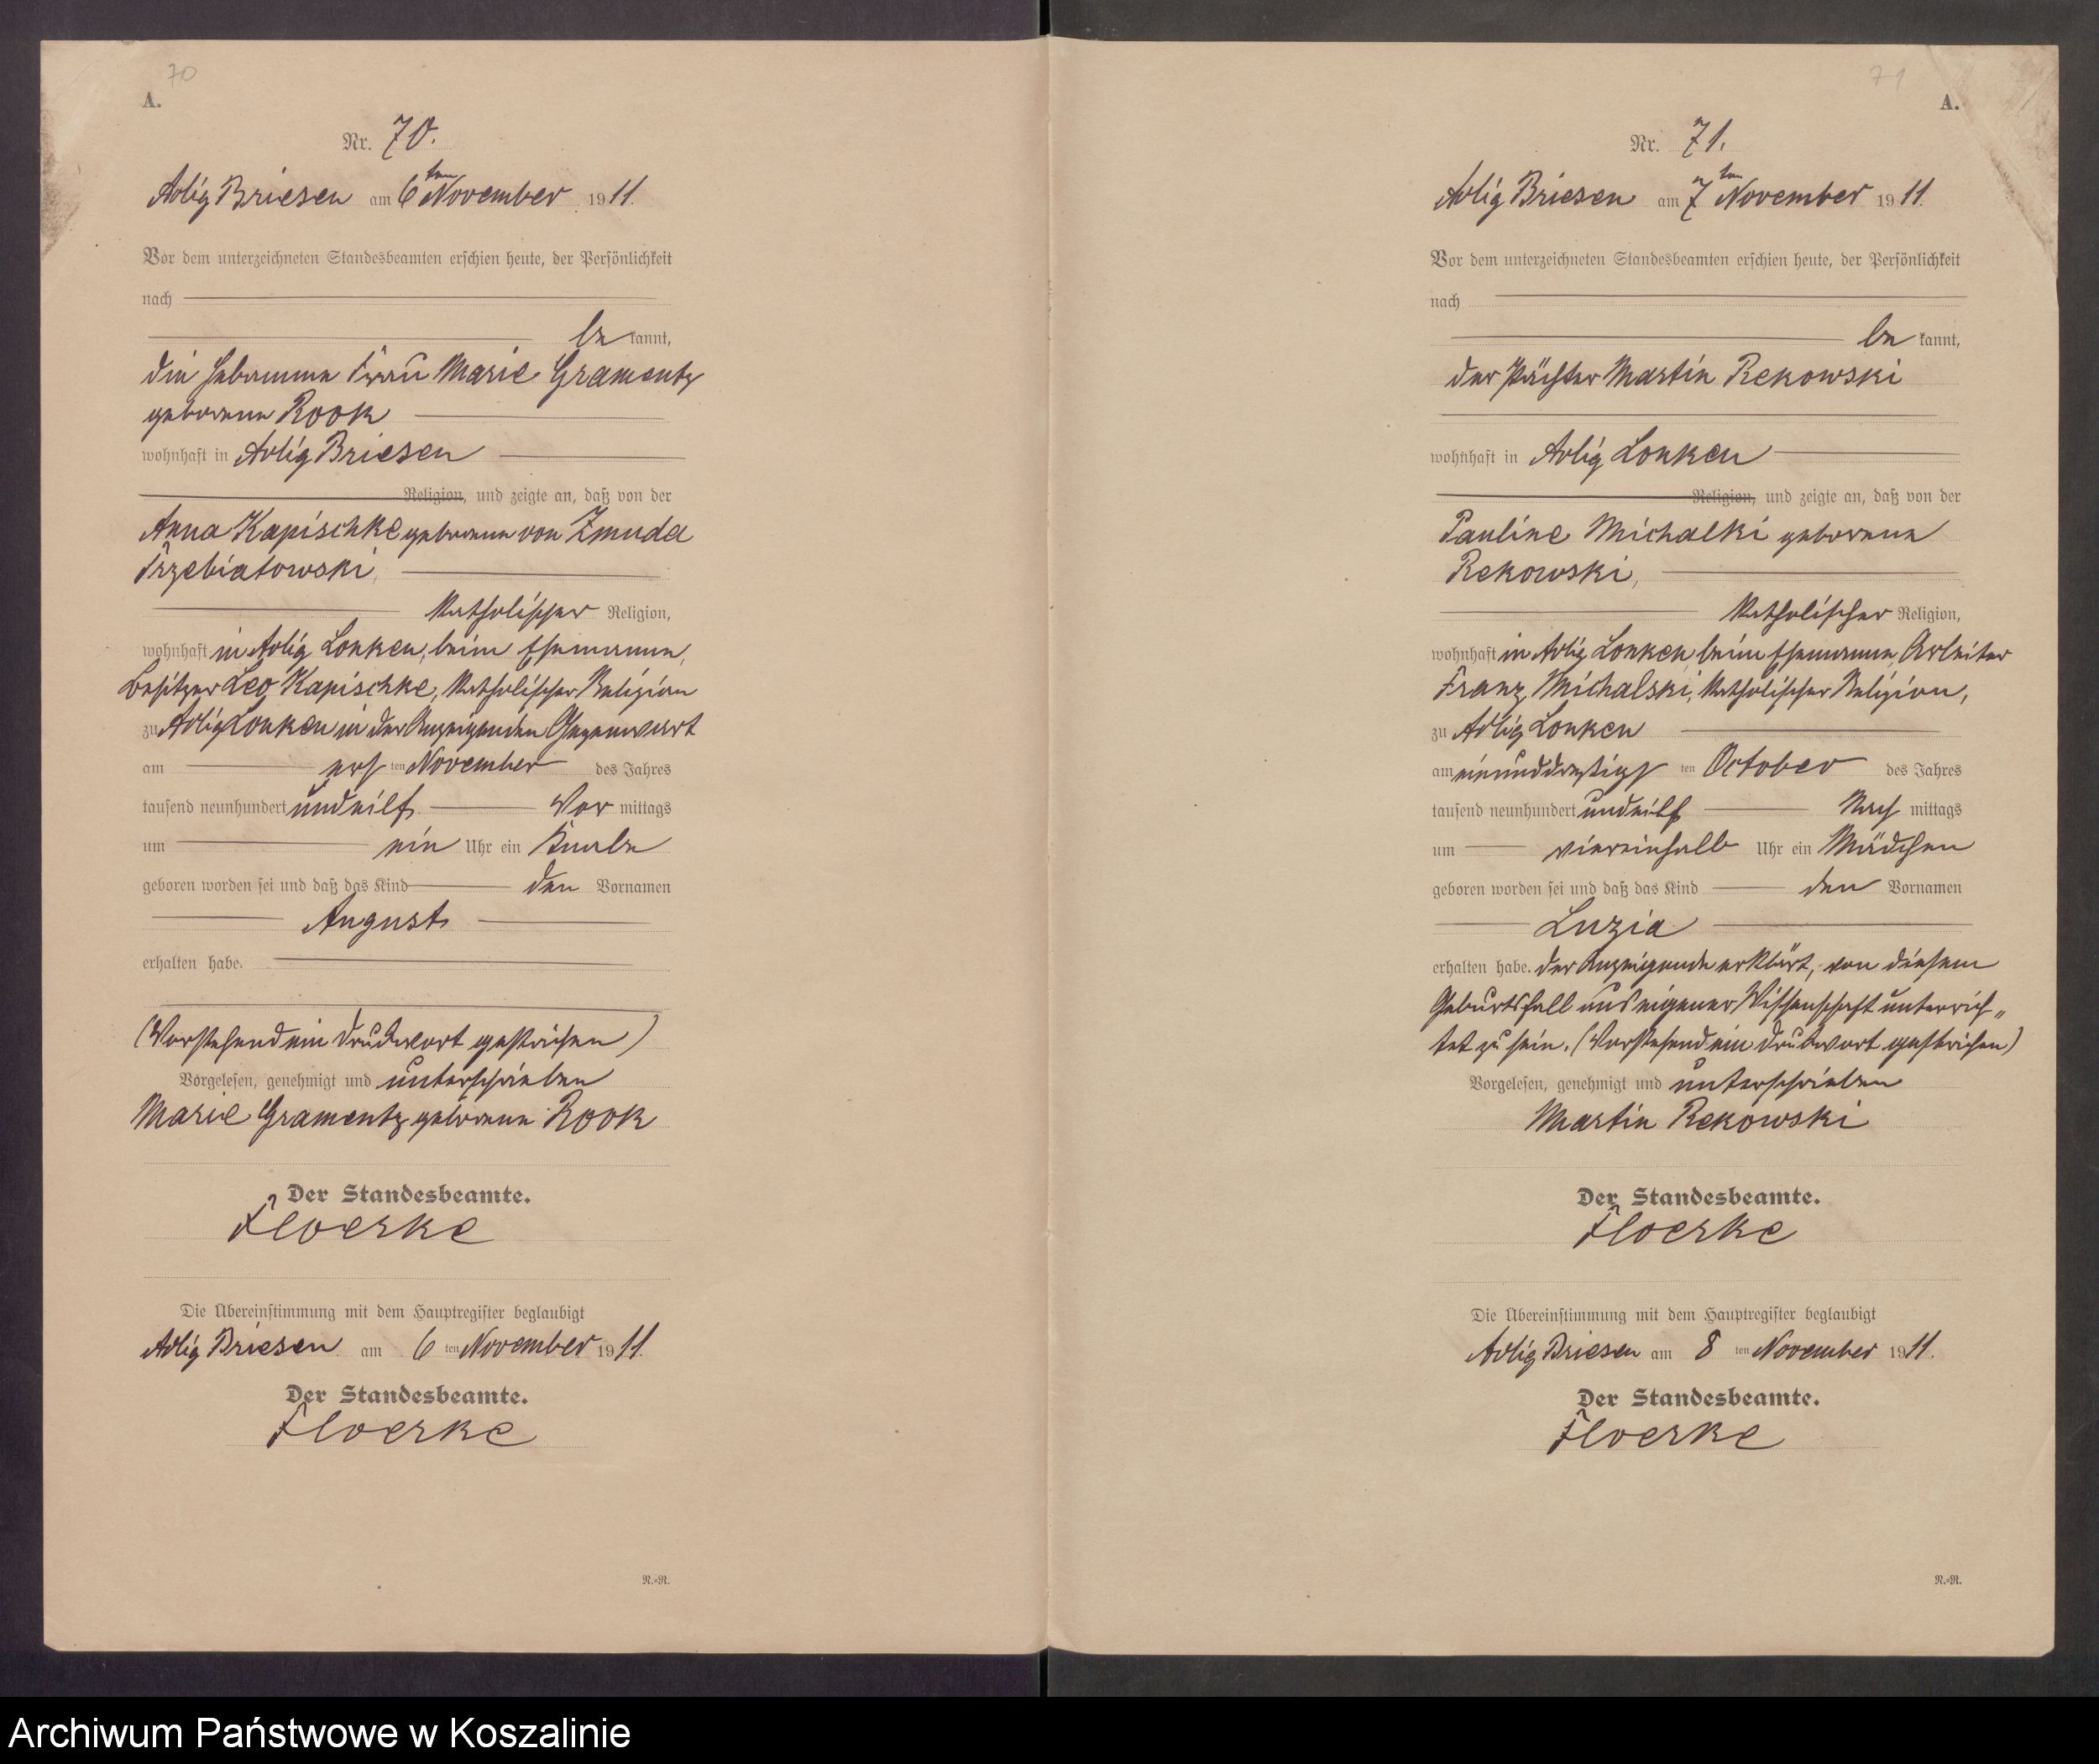 70
A.
Nr. 70.
Adlig Briesen am 6 ten November 1911.
Vor dem unterzeichneten Standesbeamten erschien heute, der Persönlichkeit
nach
be kannt,
die Hebamme Frau Marie Gramentz
geborene Rook
wohnhaft in Adlig Briesen
Religion, und zeigte an, daß von der
Anna Kapischke geborene von Zmuda
Trzebiatowski,
katholischer Religion,
wohnhaft in Adlig Lonken, beim Ehemanne,
Besitzer Leo Kapischke, katholischer Religion
zu Adlig Lonken in der Anzeigenden Gegenwart
am ersten November des Jahres
tausend neunhundert undeilf Vor mittags
um ein Uhr ein Knabe
geboren worden sei und daß das Kind den Vornamen
August
erhalten habe.
(Vorstehend ein Druckwort gestrichen)
Vorgelesen, genehmigt und unterschrieben
Marie Gramentz geborene Rook
Der Standesbeamte.
Floerke
Die Übereinstimmung mit dem Hauptregister beglaubigt
Adlig Briesen am 6 ten November 1911.
Der Standesbeamte.
Floerke
N.-R.
71
A.
Nr. 71.
Adlig Briesen am 7 ten November 1911.
Vor dem unterzeichneten Standesbeamten erschien heute, der Persönlichkeit
nach
be kannt,
der Pächter Martin Rekowski
wohnhaft in Adlig Lonken
Religion, und zeigte an, daß von der
Pauline Michalki geborene
Rekowski,
katholischer Religion,
wohnhaft in Adlig Lonken beim Ehemanne, Arbeiter
Franz Michalski, katholischer Religion,
zu Adlig Lonken
am einunddreißigsten October des Jahres
tausend neunhundert undeilf Nach mittags
um viereinhalb Uhr ein Mädchen
geboren worden sei und daß das Kind den Vornamen
Luzia
erhalten habe. Der Anzeigende erklärt, von diesem
Geburtsfall aus eigener Wissenschaft unterrich„
tet zu sein. (Vorstehend ein Druckwort gestrichen)
Vorgelesen, genehmigt und unterschrieben
Martin Rekowski
Der Standesbeamte.
Floerke
Die Übereinstimmung mit dem Hauptregister beglaubigt
Adlig Briesen am 8 ten November 1911.
Der Standesbeamte.
Floerke
N.-R.
Archiwum Państwowe w Koszalinie